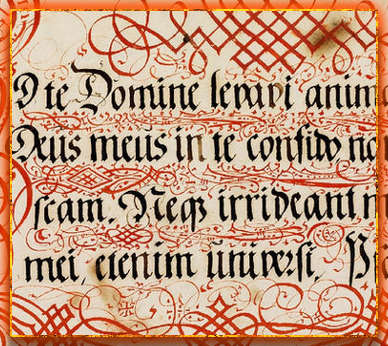 D te Domine levavi anim
Deus meus in te confido no
scam. Neq irrideant
mei, etenim universi.